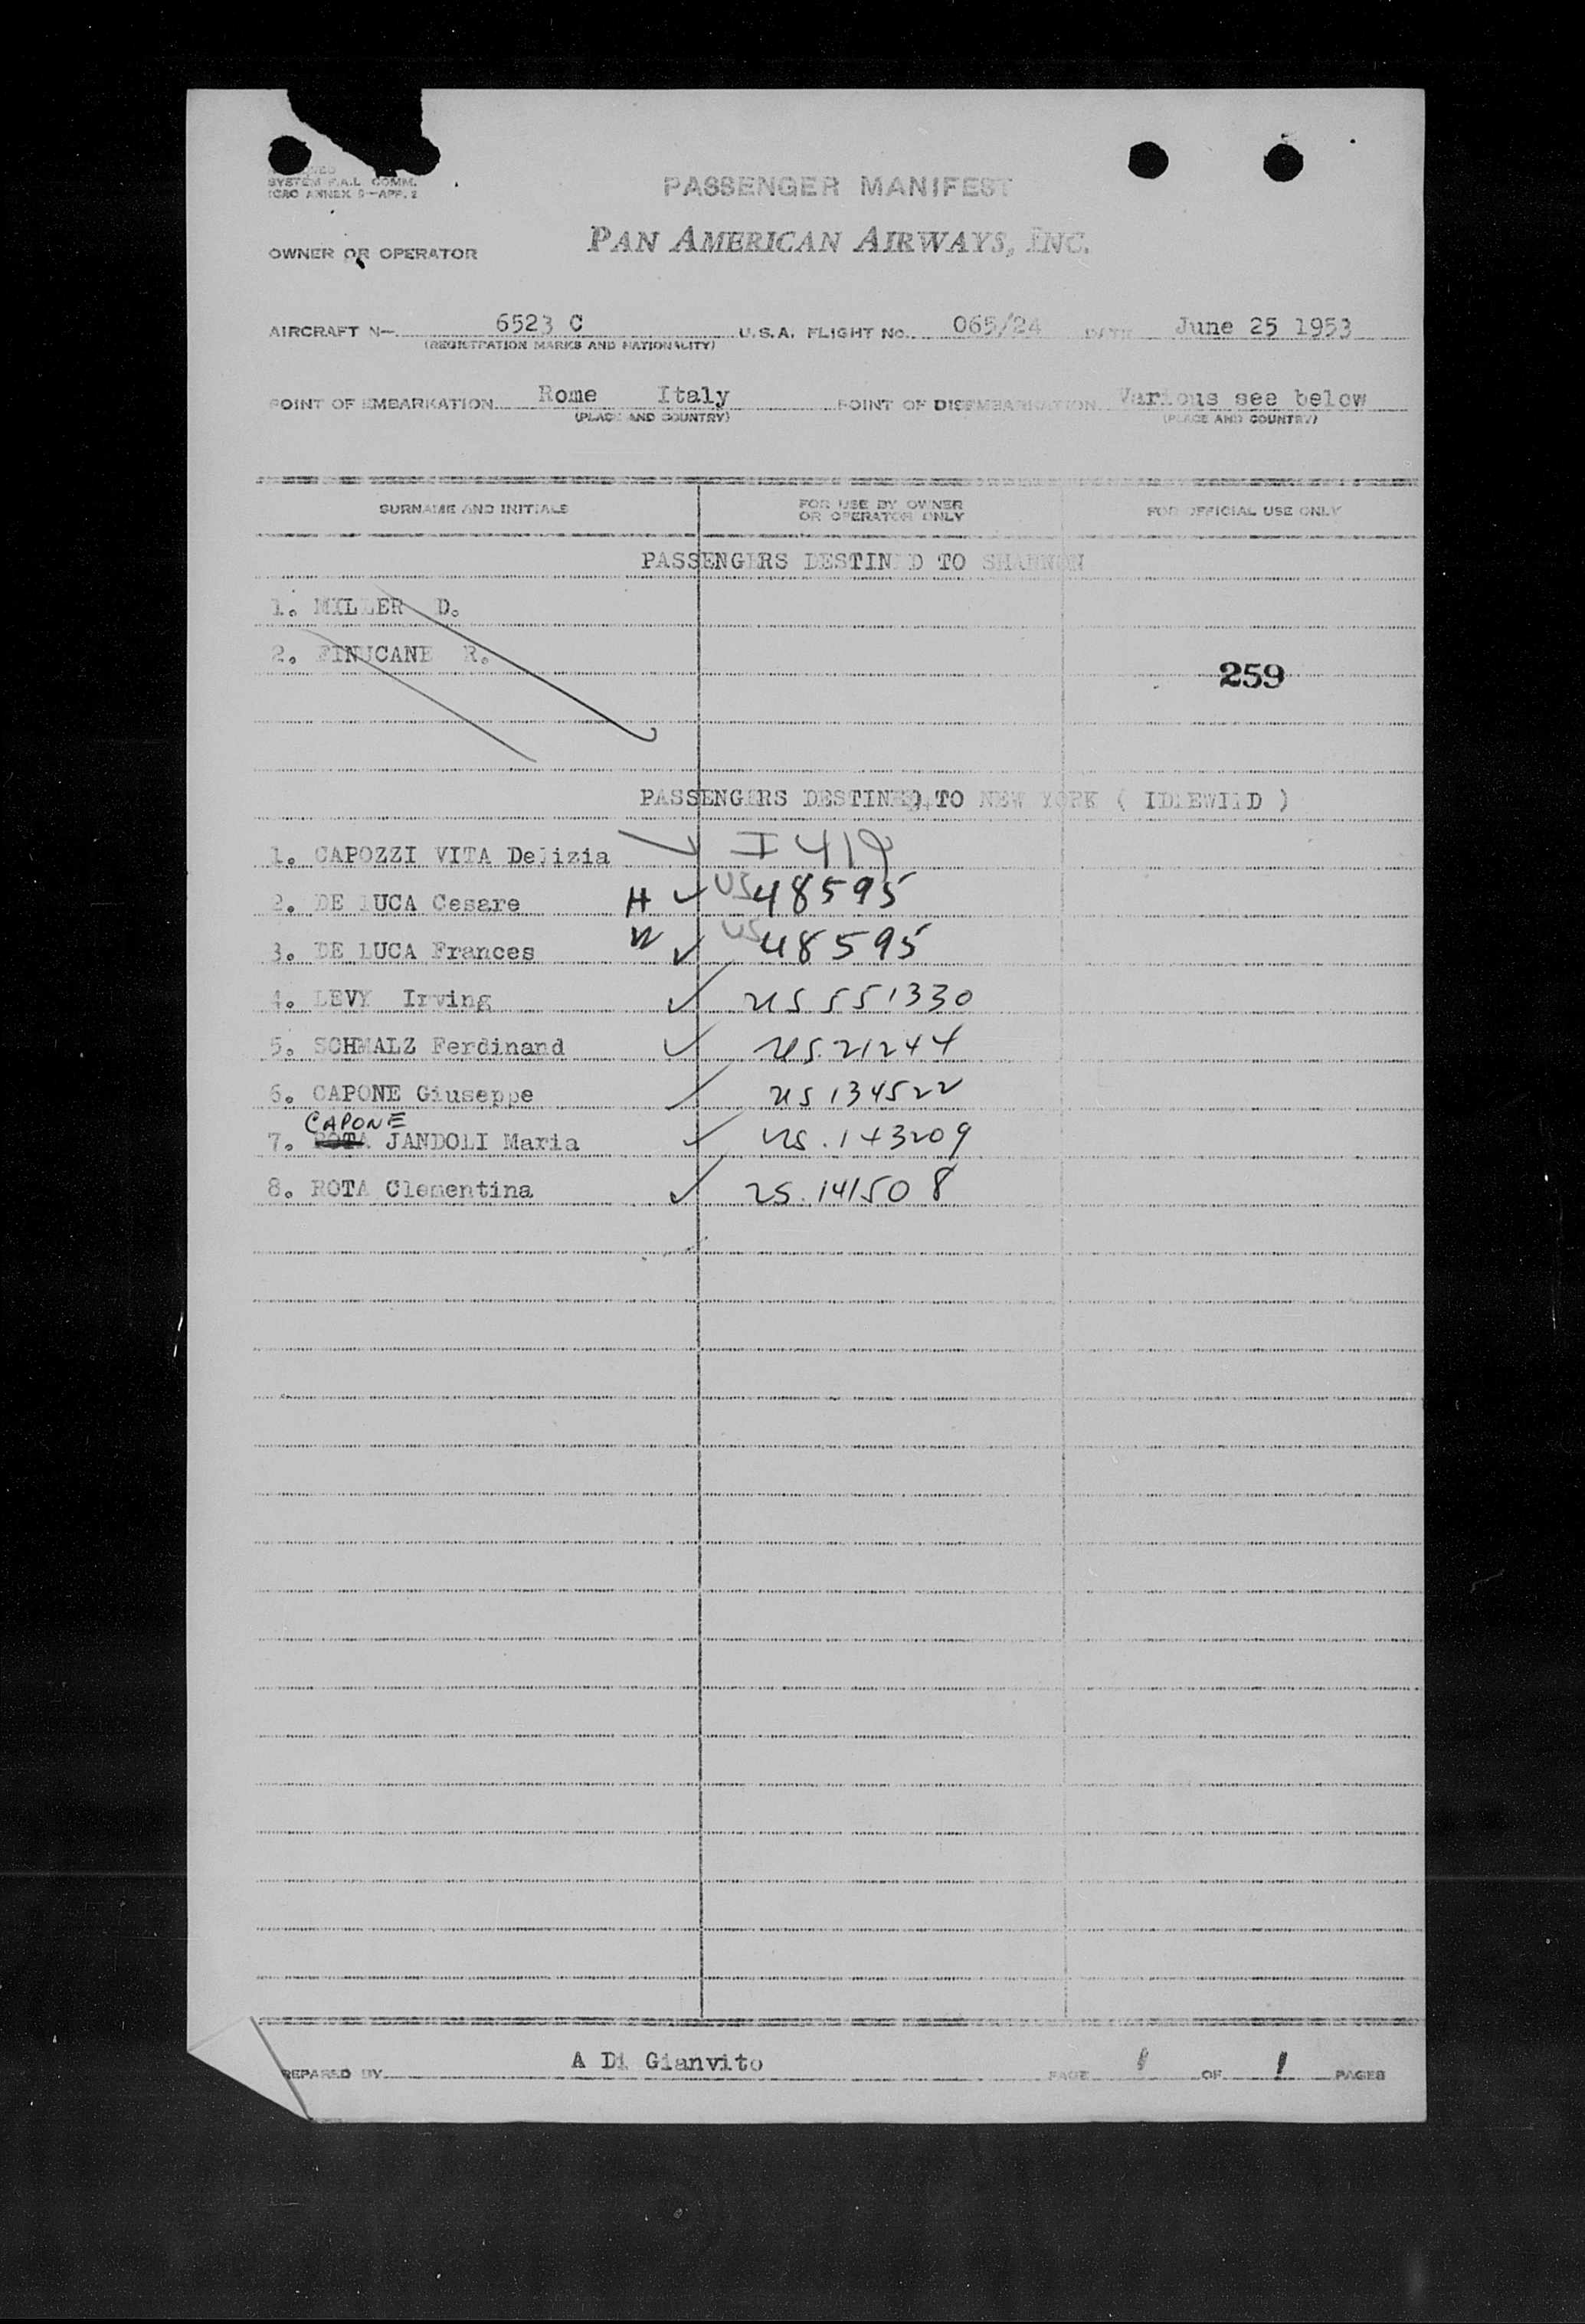 SYSTEM F.A.L. COMM.
ICAO ANNEX 9—APP. 2
PASSENGER MANIFEST
OWNER OR OPERATOR PAN AMERICAN AIRWAYS, INC.
AIRCRAFT N— 6523 C U.S.A. FLIGHT No. 065/24 DATE June 25 1953
(REGISTRATION MARKS AND NATIONALITY)
POINT OF EMBARKATION Rome Italy POINT OF DISEMBARKATION Various see below
(PLACE AND COUNTRY) (PLACE AND COUNTRY)
SURNAME AND INITIALS FOR USE BY OWNER OR OPERATOR ONLY FOR OFFICIAL USE ONLY
PASSENGERS DESTINED TO SHANNON
1. MILLER D.
2. FINUCANE R.
259
PASSENGERS DESTINED TO NEW YORK ( IDLEWILD )
1. CAPOZZI VITA Delizia I 419
2. DE LUCA Cesare H ✓ US 48595
3. DE LUCA Frances W ✓ US 48595
4. LEVY Irving ✓ US 551330
5. SCHMALZ Ferdinand ✓ US. 21244
6. CAPONE Giuseppe US 134522
CAPONE
7. ROTA JANDOLI Maria ✓ US. 143209
8. ROTA Clementina ✓ US. 141508
PREPARED BY A Di Gianvito PAGE 1 OF 1 PAGES